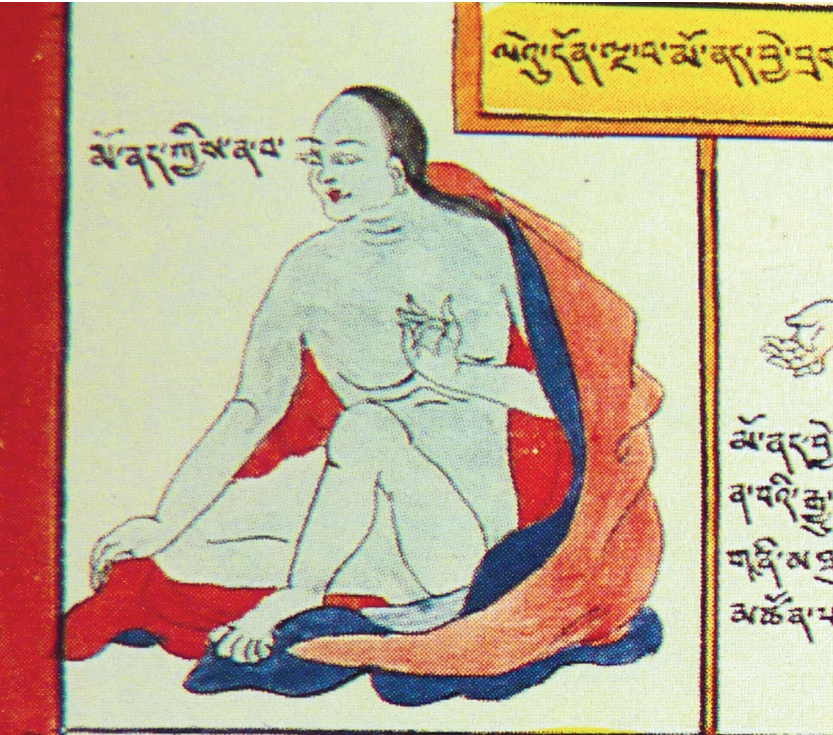 ལེའུ་དོན་ལྔ་པ་མོ་ནད་བྱེ་བྲ
མོ་ནད་ཀྱིས་ན་བ་
མོ་ནད་བྱེ
ན་བའི་
མཚོན་པ